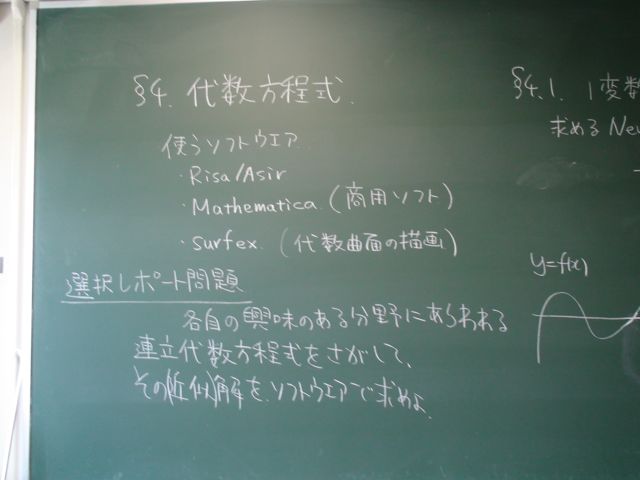 §4. 代数方程式.
使うソフトウエア
・Risa/Asir
・Mathematica. (商用ソフト)
・surfex. (代数曲面の描画)
選択レポート問題
各自の興味のある分野にあらわれる
連立代数方程式をさがして、
その(近似)解を、ソフトウエアで求めよ.
§4.1. 1変数
求める New
y=f(x)